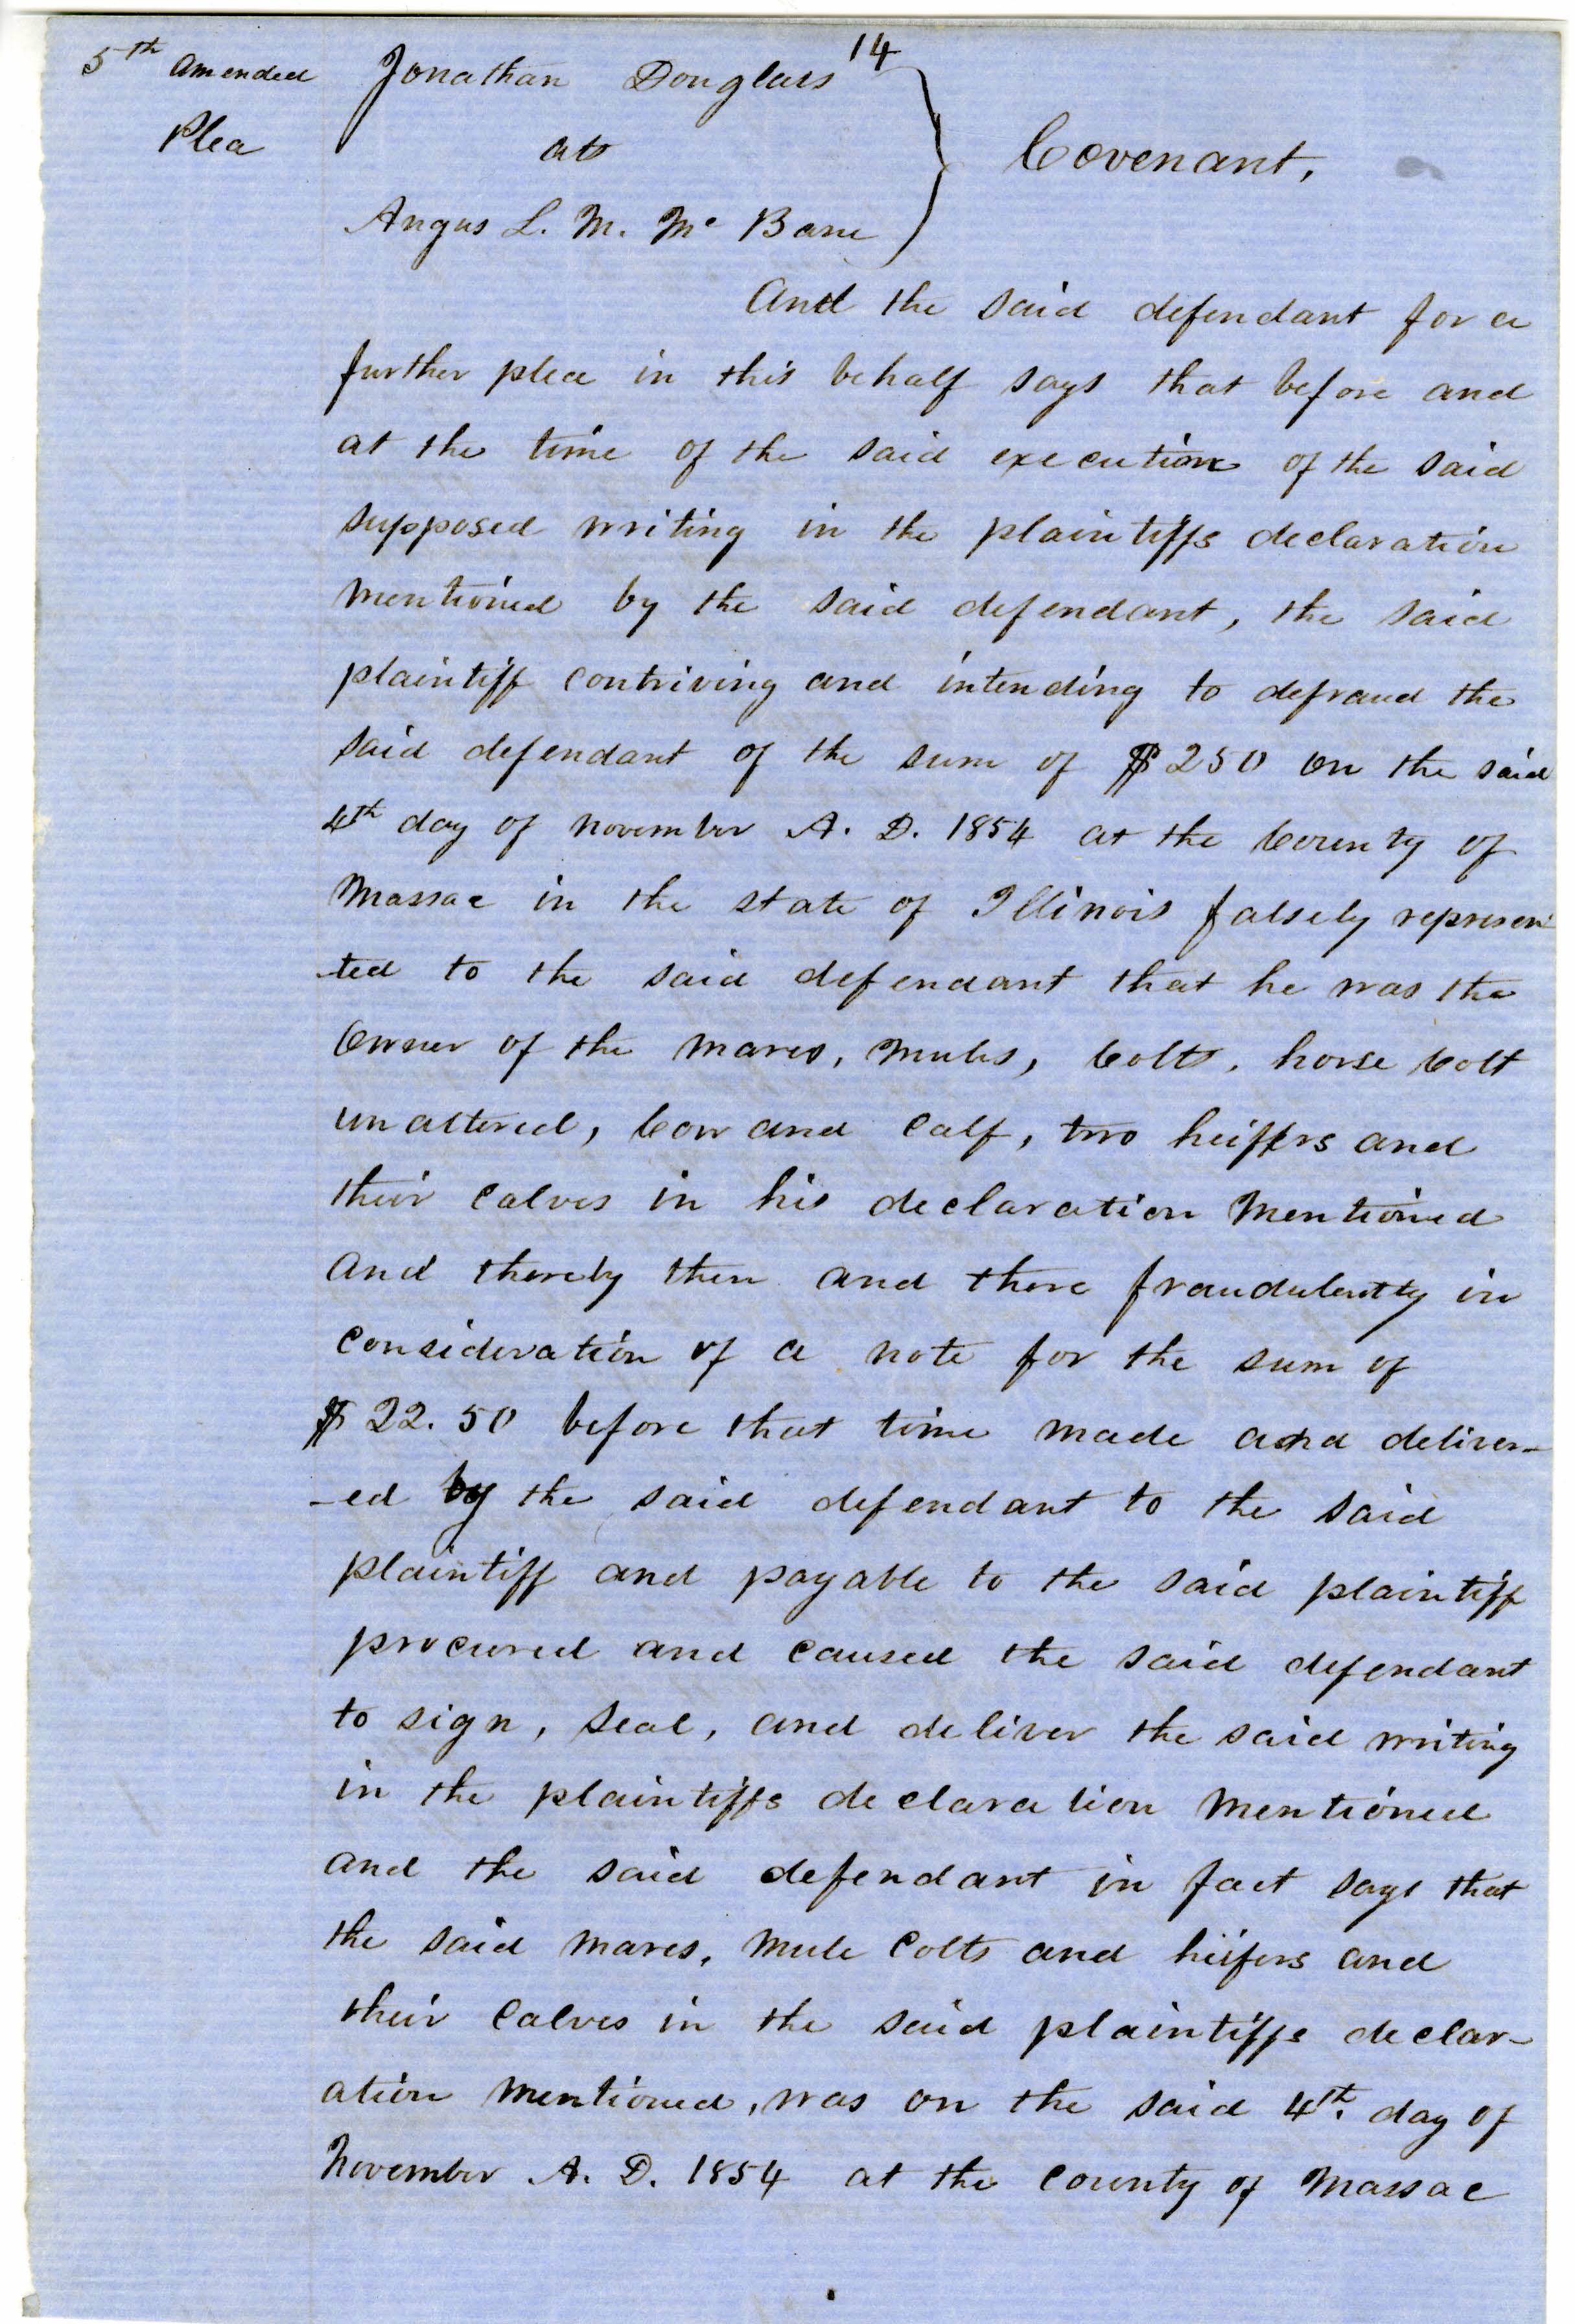 14
5th amended Jonathan Douglass
Plea ats Covenant,
Angus L. M. Mc Bane
And the said defendant for a
further plea in this behalf says that before and
at the time of the said execution of the said
supposed writing in the plaintiffs declaration
mentioned by the said defendant, the said
plaintiff contriving and intending to defraud the
said defendant of the sum of $250 on the said
4th day of November A. D. 1854 at the County of
Massac in the state of Illinois falsely represen
-ted to the said defendant that he was the
Owner of the mares, mules, Colts, horse Colt
unaltered, Cow and Calf, two heiffers and
their Calves in his declaration mentioned
and thereby then and there fraudulently in
Consideration of a note for the sum of
$22.50 before that time made and deliver-
-ed by the said defendant to the said
plaintiff and payable to the said plaintiff
procured and caused the said defendant
to sign, seal, and deliver the said writing
in the plaintiffs declaration mentioned
and the said defendant in fact says that
the said mares, mule Colts and heifers and
their Calves in the said plaintiffs declar-
ation mentioned, was on the said 4th. day of
November A. D. 1854 at the County of Massac